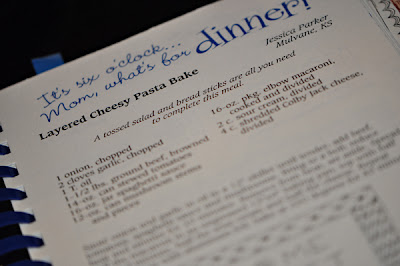 It's six o'clock...
Mom, what's for dinner?
Jessica Parker
Mulvane, KS
Layered Cheesy Pasta Bake
A tossed salad and bread sticks are all you need
to complete this meal.
1 onion, chopped
2 cloves garlic, chopped
1 T. oil
1-1/2 lbs. ground beef, browned
14-oz. can stewed tomatoes
16-oz. jar spaghetti sauce
12-oz. can mushroom stems
and pieces
16-oz. pkg. elbow macaroni,
cooked and divided
2 c. sour cream, divided
4 c. shredded Colby Jack cheese,
divided